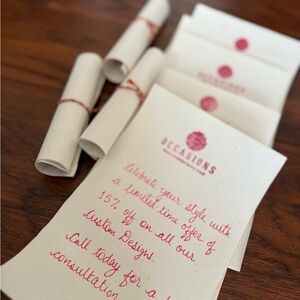 OCCASIONS
Celebrate your style with
a limited time offer of
15% off on all our
Custom Designs.
Call today for a
consultation